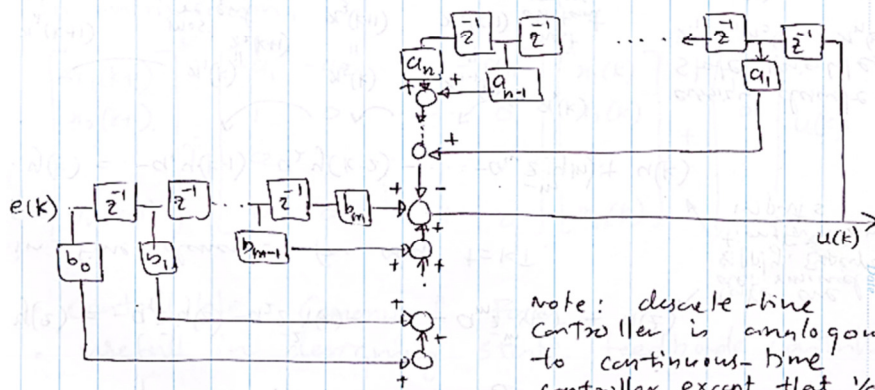 z⁻¹ z⁻¹ .... z⁻¹ z⁻¹
aₙ aₙ₋₁ a₁
+ +
+
e(k) z⁻¹ z⁻¹ ... z⁻¹ bₘ + -
u(k)
b₀ b₁ bₘ₋₁ + +
+ +
+ +
+
Note: descrete-time
controller is analogou
to continuous-time
controller except that